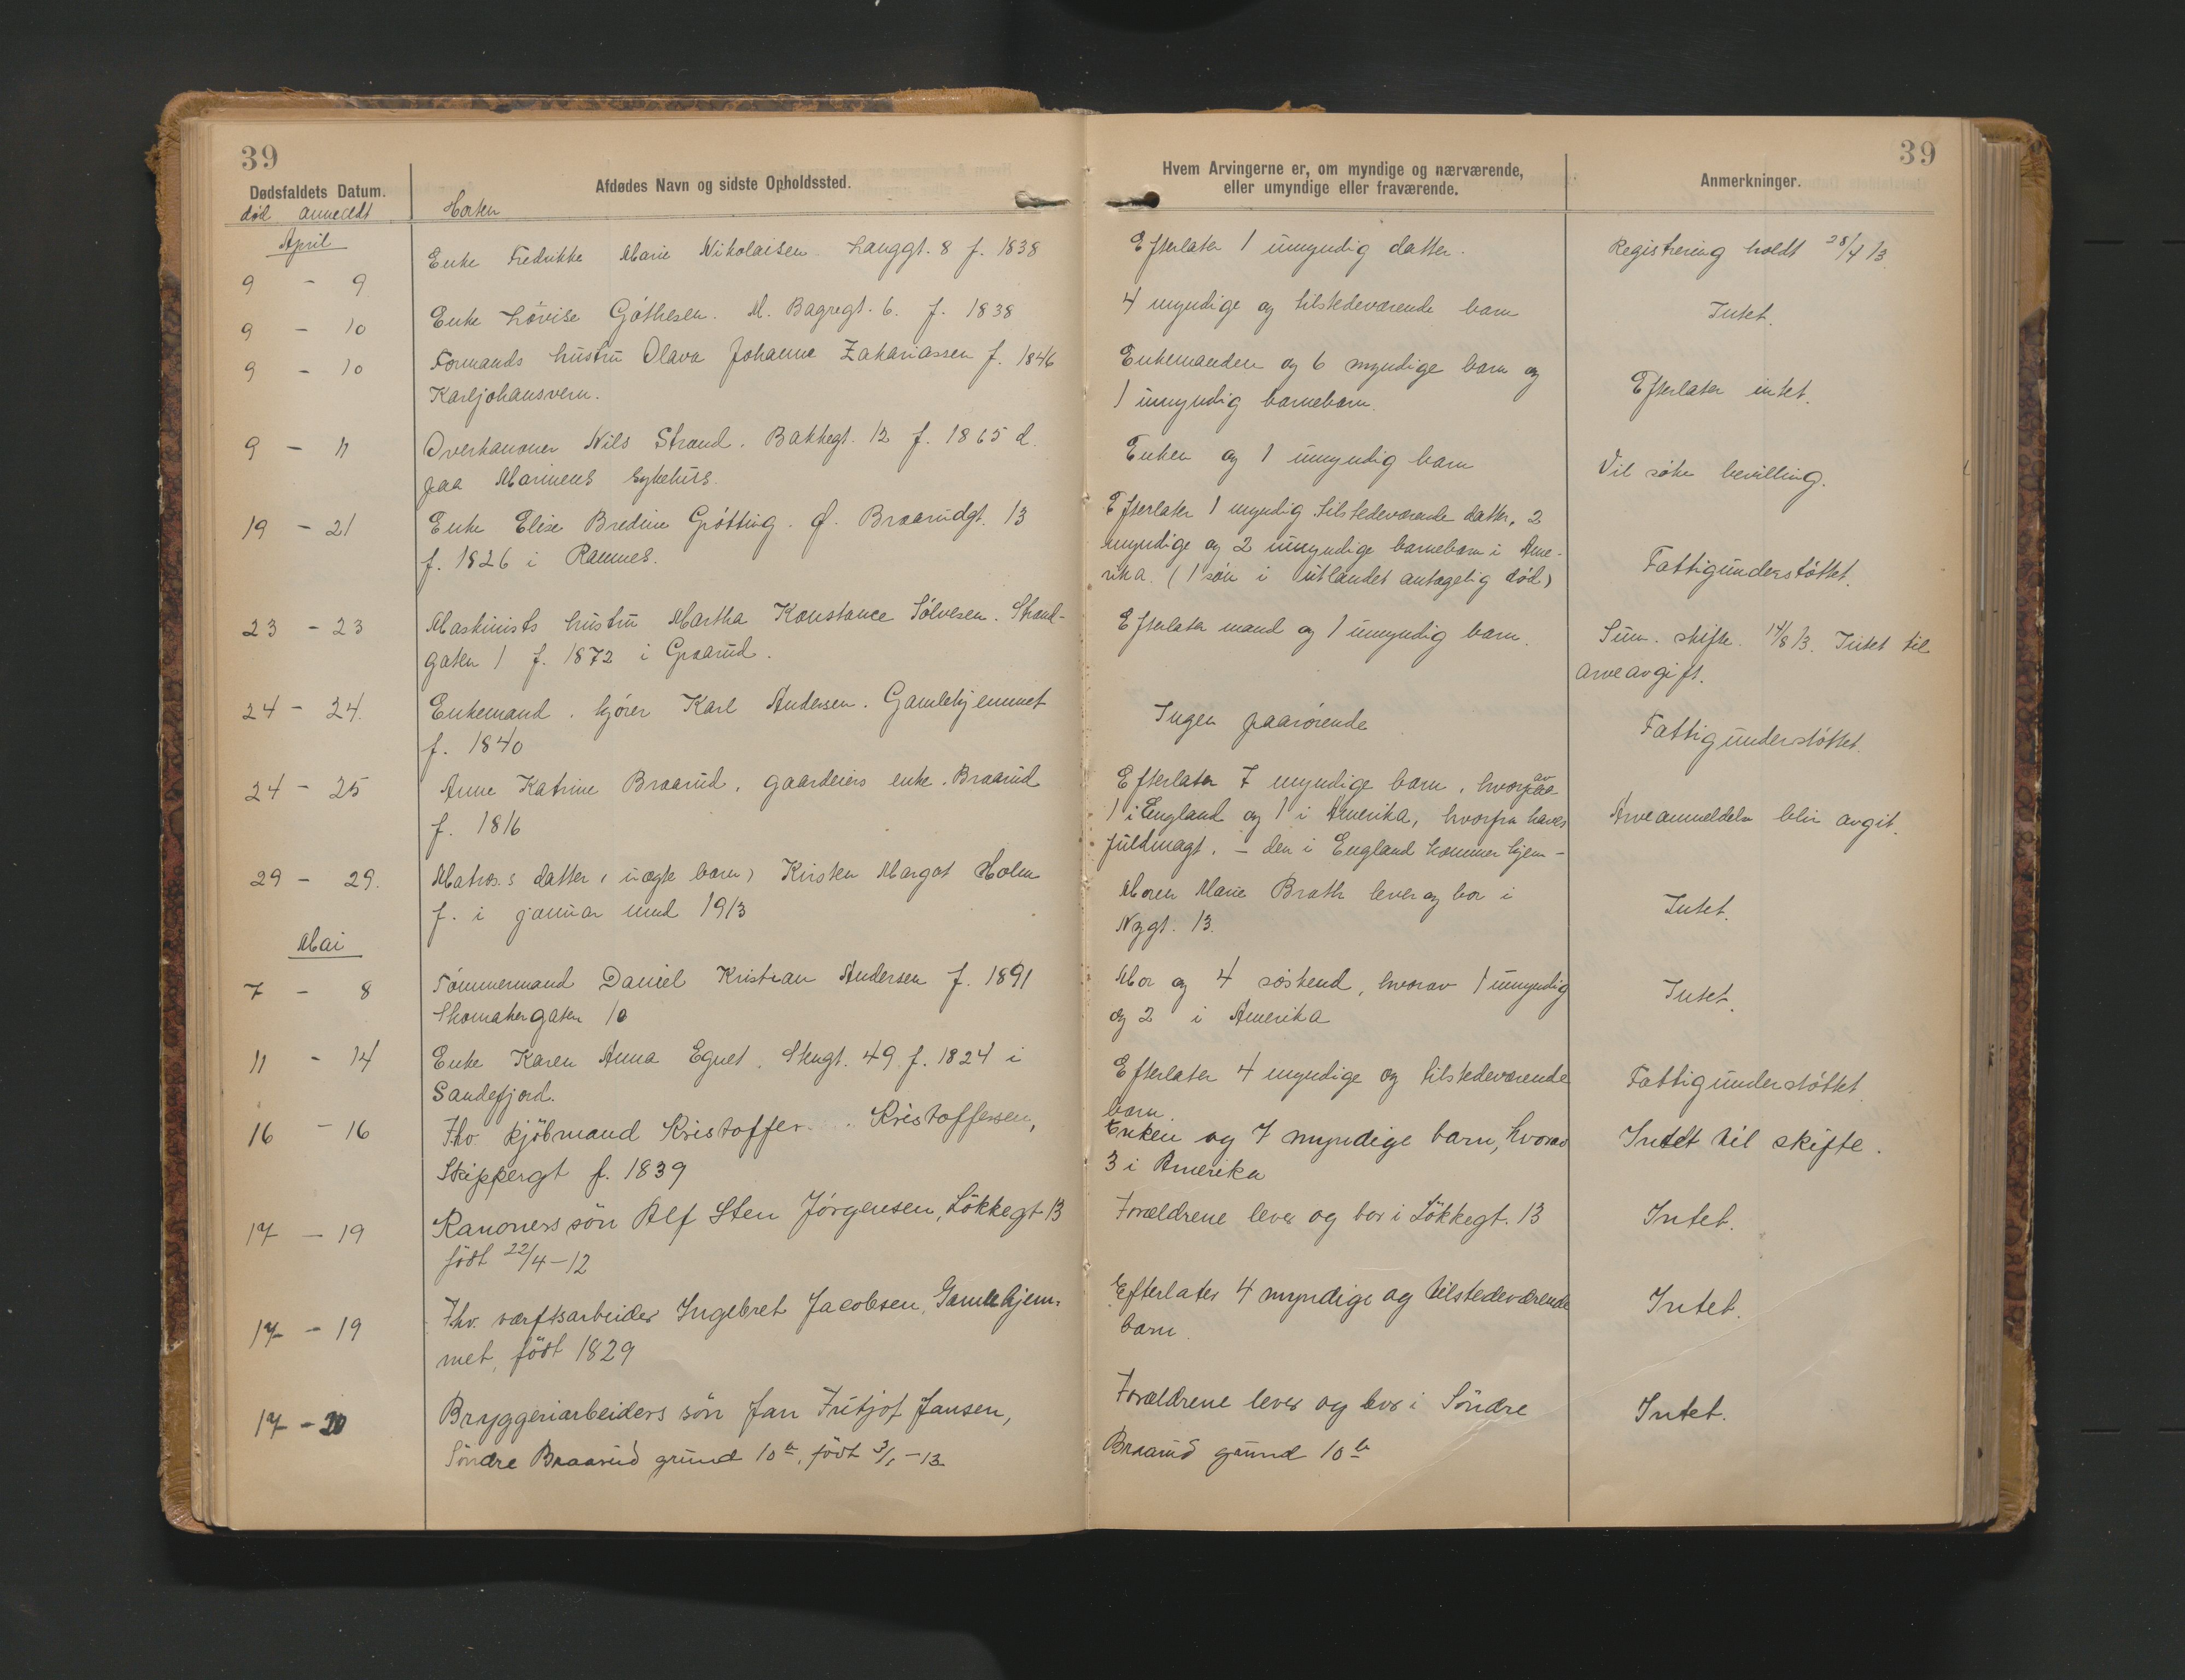 39
39
Dødsfaldets Datum.
Afdødes Navn og sidste Opholdssted.
Hvem Arvingerne er, om myndige og nærværende,
eller umyndige eller fraværende.
Anmerkninger.
død anmeldt
Horten
April
9 - 9
Enke Fredrikke Marie Nikolaisen. Langgt. 8 f. 1838
Efterlater 1 umyndig datter.
Registrering holdt 28/4 13.
9 - 10
Enke Lovise Gøthesen. M. Bagregt. 6. f. 1838
4 myndige og tilstedeværende barn
Intet.
9 - 10
Formands hustru Olava Johanne Zakariassen f. 1846
Karljohansvern.
Enkemanden og 6 myndige barn og
1 umyndig barnebarn.
Efterlater intet.
9 - 11
Overkanoner Nils Strand. Bakkegt. 12 f. 1865 d.
paa Marinens sykehus.
Enken og 1 umyndig barn
Vil søke bevilling.
19 - 21
Enke Elise Bredine Grøtting. Ø. Braarudgt. 13
f. 1826 i Ramnes.
Efterlater 1 myndig tilstedeværende datter, 2
myndige og 2 umyndige barnebarn i Ame-
rika. (1 søn i utlandet antagelig død)
Fattigunderstøttet.
23 - 23
Maskinists hustru Martha Konstance Sølvesen. Strand-
gaten 1 f. 1872 i Graarud.
Efterlater mand og 1 umyndig barn.
Sum. skifte. 14/8 13. Intet til
arveavgift.
24 - 24.
Enkemand. kjører Karl Andersen. Gamlehjemmet
f. 1840
Ingen paarørende
Fattigunderstøttet.
24 - 25
Anne Katrine Braarud, gaardeiers enke. Braarud
f. 1816
Efterlater 7 myndige barn, hvorav
1 i England og 1 i Amerika, hvorfra haves
fuldmagt. - den i England kommer hjem -
Arveanmeldelse blir avgit.
29 - 29.
Matros.s datter (uægte barn) Kirsten Margot Holm
f. i januar mnd 1913
Moren Marie Brath lever og bor i
Nygt. 13.
Intet.
Mai
7 - 8
Tømmermand Daniel Kristian Andersen f. 1891
Skomakergaten 10
Mor og 4 søskend, hvorav 1 umyndig
og 2 i Amerika
Intet.
11 - 14
Enke Karen Anna Egnet. Stengt. 49 f. 1824 i
Sandefjord.
Efterlater 4 myndige og tilstedeværende
barn.
Fattigunderstøttet.
16 - 16
Fhv. kjøbmand Kristoffer Kristoffersen,
Skippergt f. 1839
Enken og 7 myndige barn, hvorav
3 i Amerika
Intet til skifte.
17 - 19
Kanoners søn Alf Sten Jørgensen, Løkkegt 13
født 22/4-12
Forældrene lever og bor i Løkkegt. 13
Intet.
17 - 19
Fhv. værftsarbeider Ingebret Jacobsen, Gamlehjem-
met, født 1829
Efterlater 4 myndige og tilstedeværende
barn.
Intet.
17 - 20
Bryggeriarbeiders søn Jan Fritjof Jansen,
Søndre Braarud grund 10 b, født 3/1-13
Forældrene lever og bor i Søndre
Braarud grund 10 b
Intet.